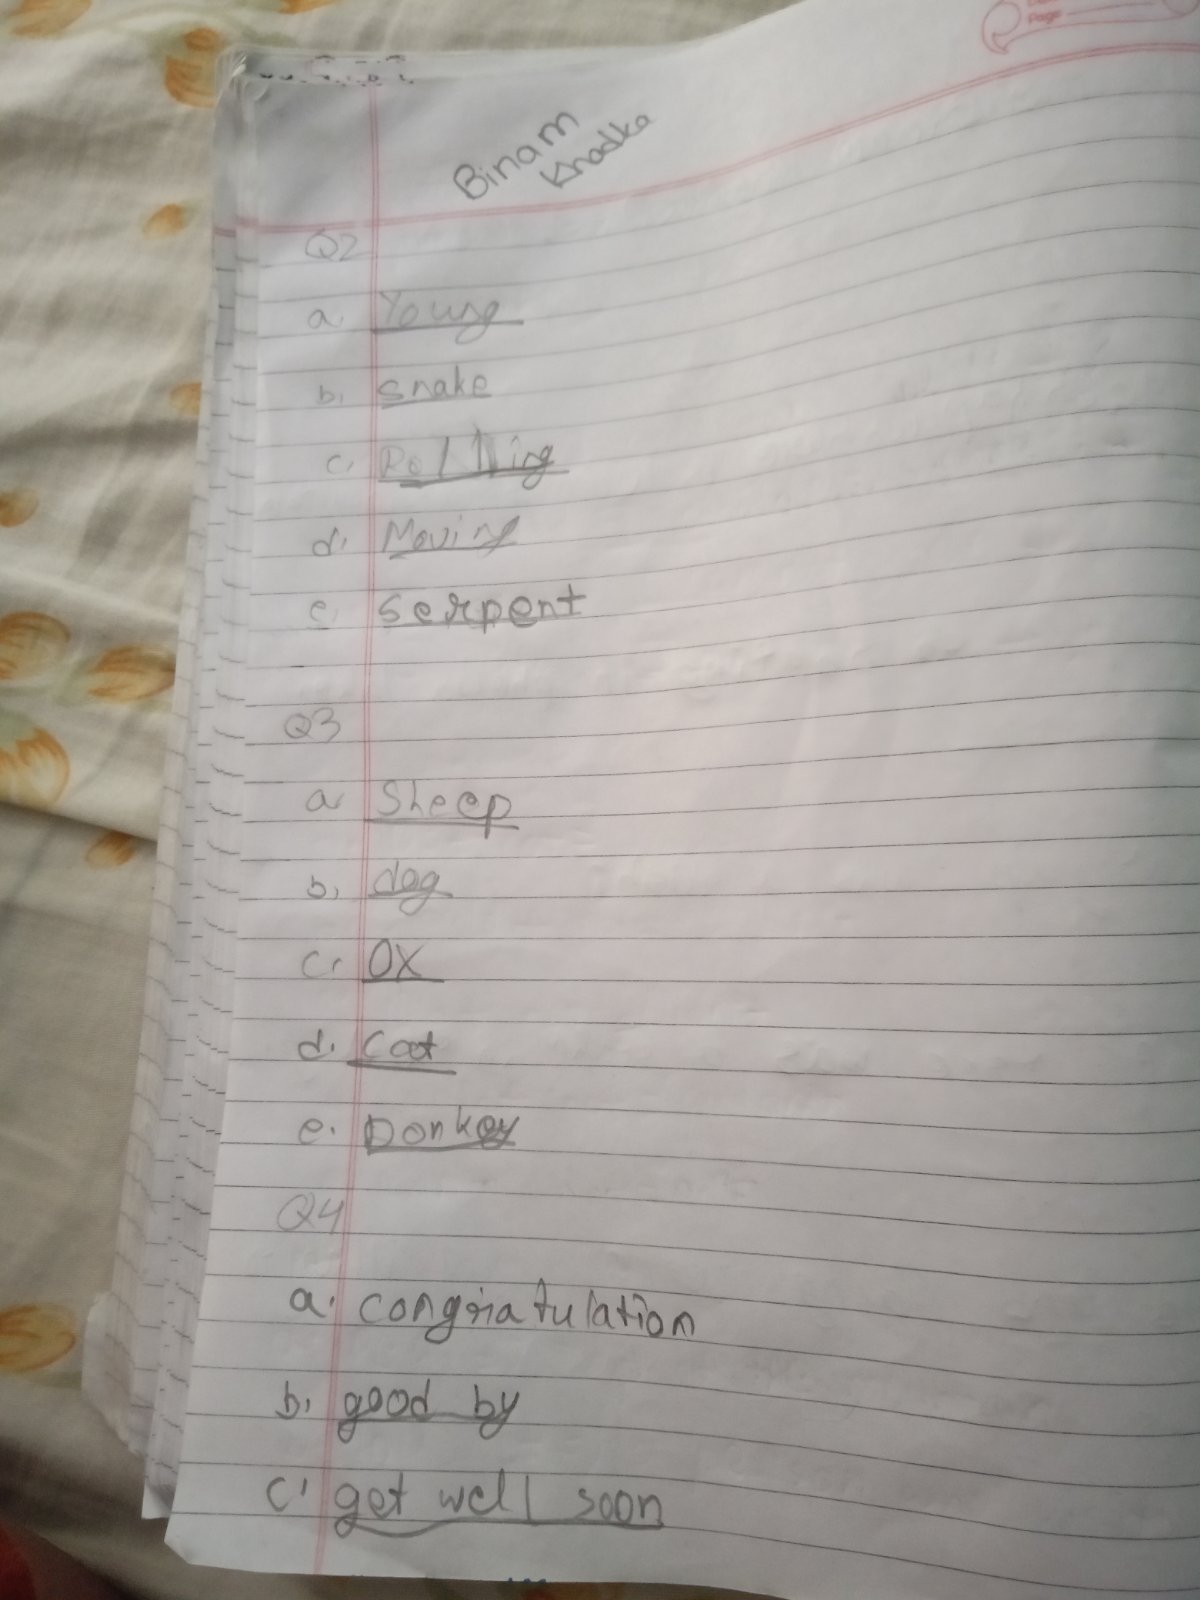 Page
Binam
Khadka
Q2
a. Young
b. snake
c. Rolling
d. Moving
e. serpent
Q3
a. Sheep
b. dog
c. OX
d. Cat
e. Donkey
Q4
a. congratulation
b. good by
c. get well soon